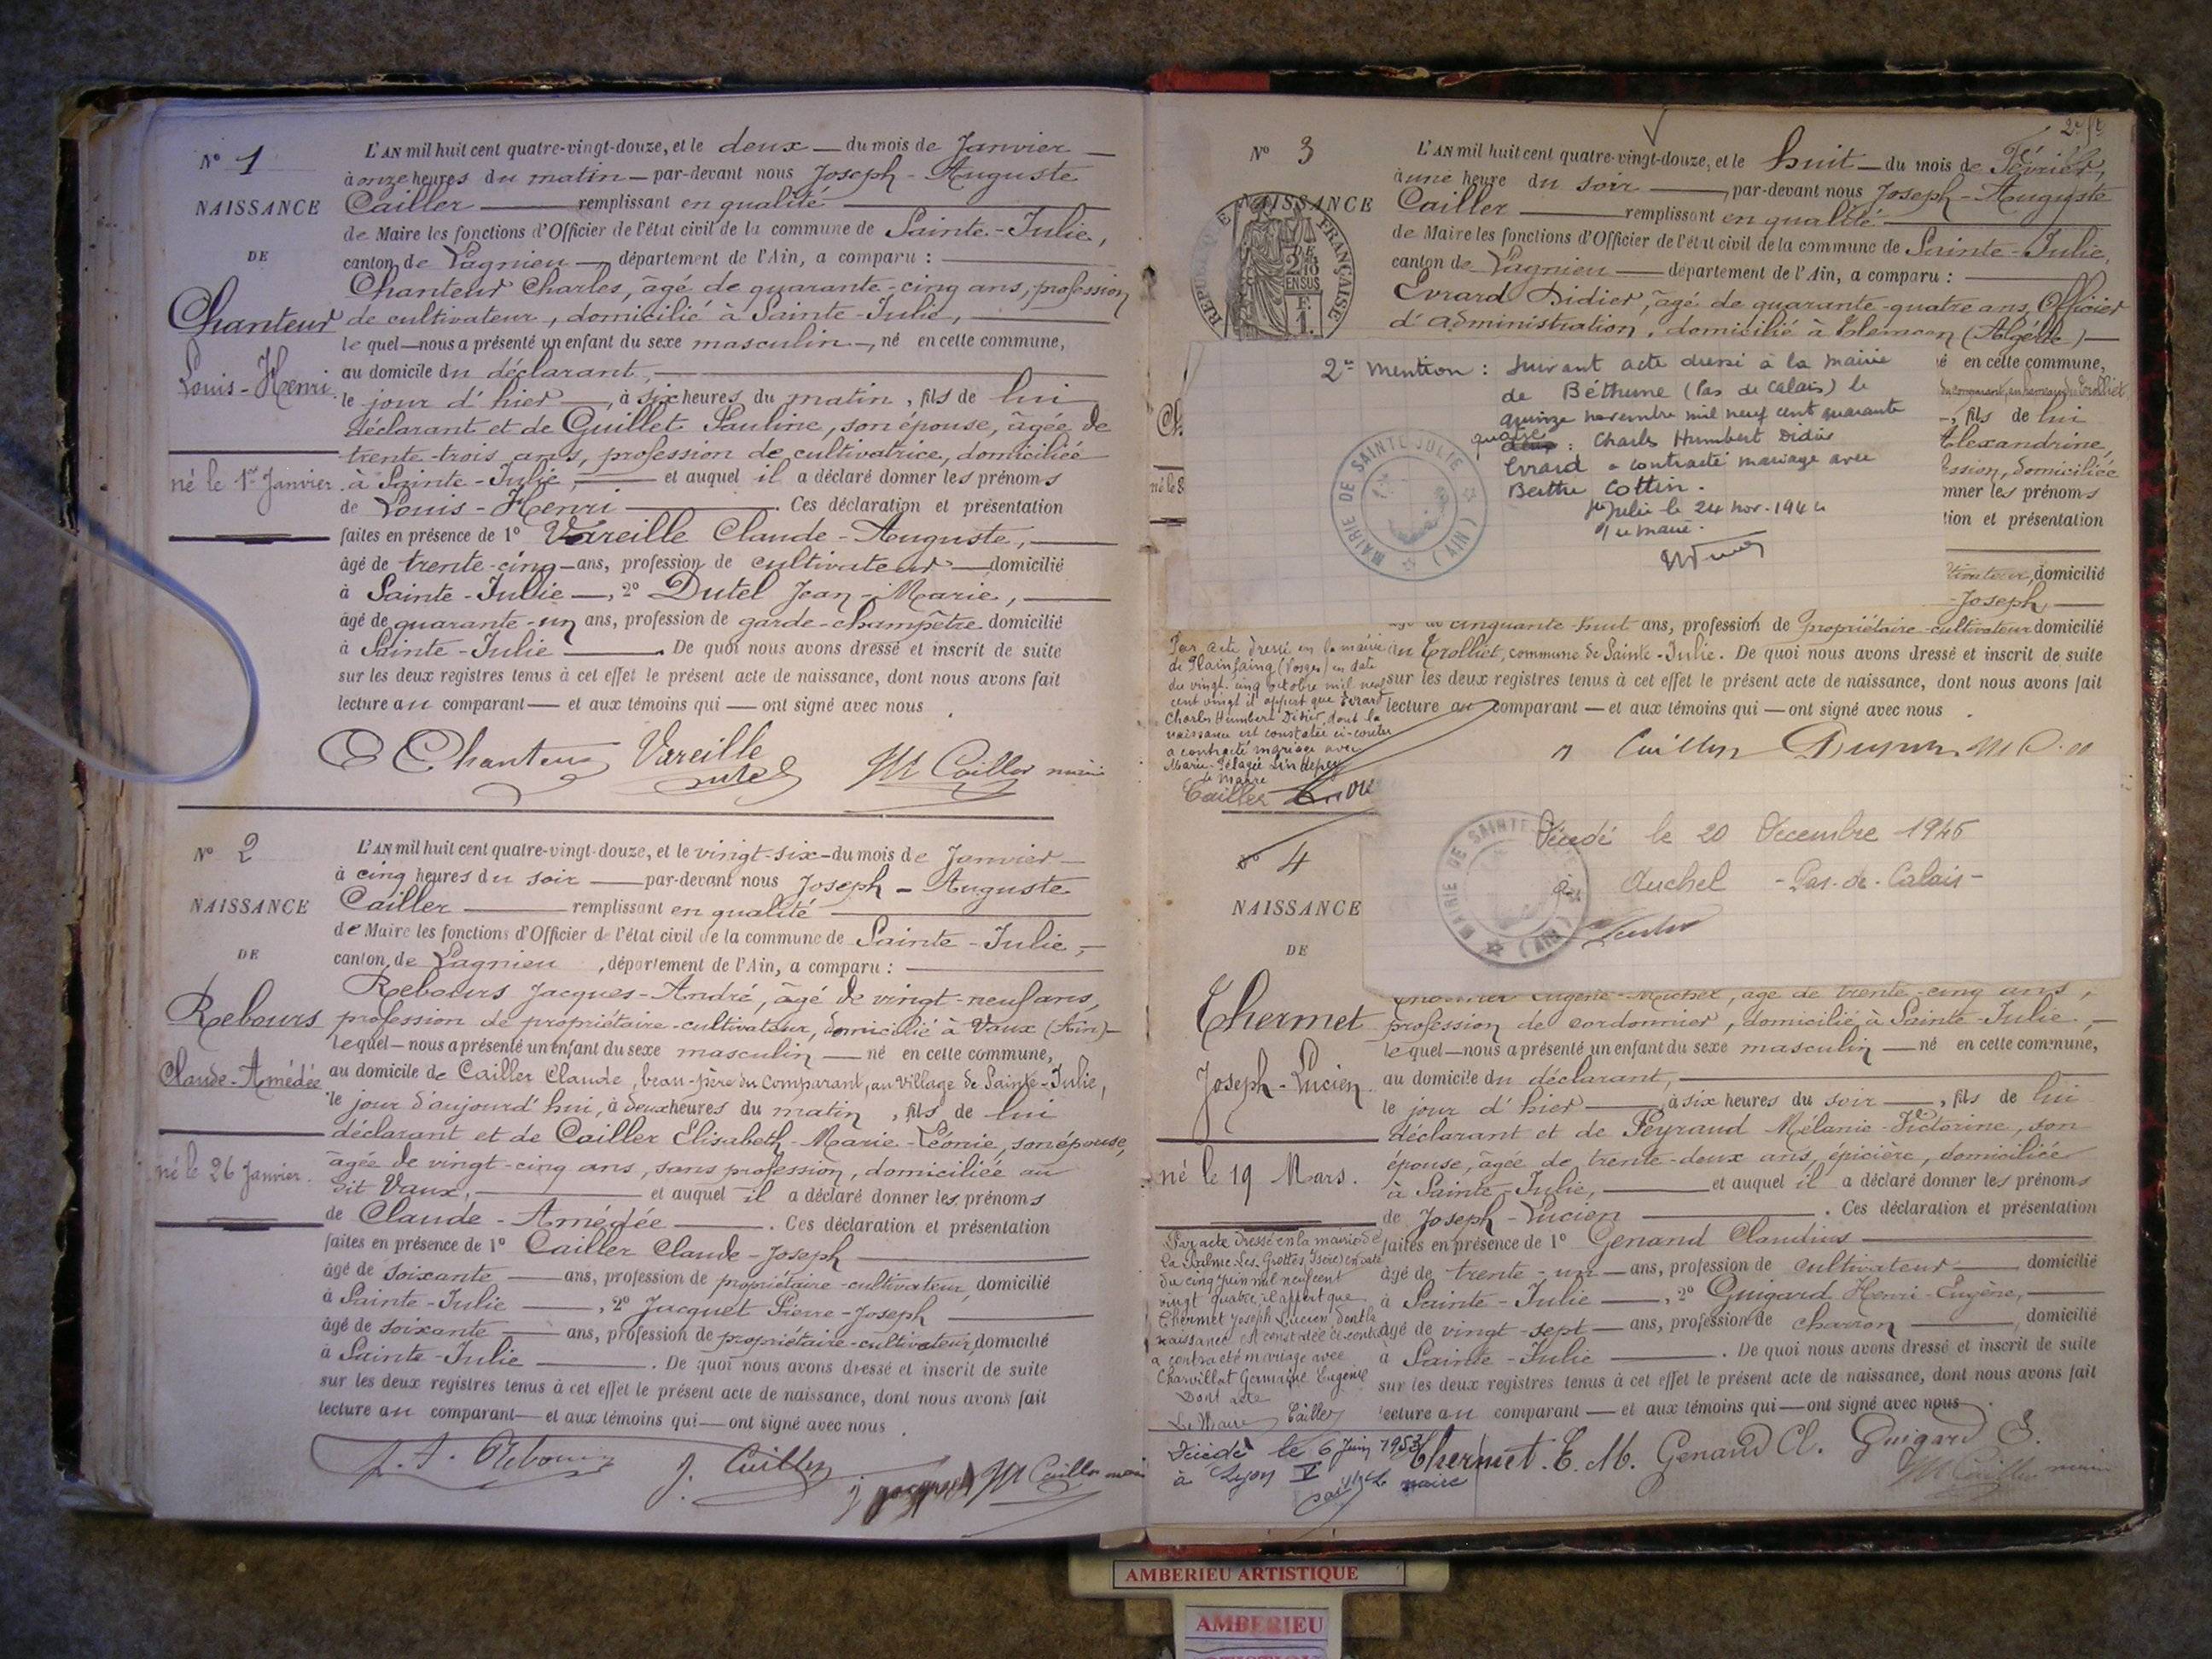 N° 1
NAISSANCE
DE
Chanteur
Louis-Henri
né le 1er Janvier
L'AN mil huit cent quatre-vingt-douze, et le deux — du mois de Janvier —
à onze heures du matin — par-devant nous Joseph-Auguste
Cailler — remplissant en qualité —
de Maire les fonctions d'Officier de l'état civil de la commune de Sainte-Julie,
canton de Lagnieu — département de l'Ain, a comparu : —
Chanteur Charles, âgé de quarante-cinq ans, profession
de cultivateur, domicilié à Sainte-Julie, —
lequel — nous a présenté un enfant du sexe masculin —, né en cette commune,
au domicile du déclarant, —
le jour d'hier —, à six heures du matin, fils de lui
déclarant et de Guillet Pauline, son épouse, âgée de
trente-trois ans, profession de cultivatrice, domiciliée
à Sainte-Julie, — et auquel il a déclaré donner les prénoms
de Louis-Henri — . Ces déclaration et présentation
faites en présence de 1° Vareille Claude-Auguste, —
âgé de trente-cinq — ans, profession de cultivateur — domicilié
à Sainte-Julie —, 2° Dutel Jean-Marie, —
âgé de quarante-un ans, profession de garde-champêtre domicilié
à Sainte-Julie — . De quoi nous avons dressé et inscrit de suite
sur les deux registres tenus à cet effet le présent acte de naissance, dont nous avons fait
lecture au comparant — et aux témoins qui — ont signé avec nous .
Chanteur Vareille Cailler maire
Dutel
N° 2
NAISSANCE
DE
Rebours
Claude-Amédée
né le 26 Janvier.
L'AN mil huit cent quatre-vingt-douze, et le vingt-six — du mois de Janvier —
à cinq heures du soir — par-devant nous Joseph-Auguste
Cailler — remplissant en qualité —
de Maire les fonctions d'Officier de l'état civil de la commune de Sainte-Julie, —
canton de Lagnieu , département de l'Ain, a comparu : —
Rebours Jacques-André, âgé de vingt-neuf ans,
profession de propriétaire-cultivateur, domicilié à Vaux (Ain) —
lequel — nous a présenté un enfant du sexe masculin — né en cette commune,
au domicile de Cailler Claude, beau-père du comparant, au village de Sainte-Julie,
le jour d'aujourd'hui, à deux heures du matin , fils de lui
déclarant et de Cailler Elisabeth-Marie-Léonie, son épouse,
âgée de vingt-cinq ans, sans profession, domiciliée au
dit Vaux, — et auquel il a déclaré donner les prénoms
de Claude-Amédée — . Ces déclaration et présentation
faites en présence de 1° Cailler Claude-Joseph —
âgé de soixante — ans, profession de propriétaire-cultivateur, domicilié
à Sainte-Julie —, 2° Jacquet Pierre-Joseph —
âgé de soixante — ans, profession de propriétaire-cultivateur, domicilié
à Sainte-Julie — . De quoi nous avons dressé et inscrit de suite
sur les deux registres tenus à cet effet le présent acte de naissance, dont nous avons fait
lecture au comparant — et aux témoins qui — ont signé avec nous .
J. A. Rebours J. Cailler J Jacquet Cailler maire
N° 3
NAISSANCE
RÉPUBLIQUE FRANÇAISE
2/10 EN SUS
L'AN mil huit cent quatre-vingt-douze, et le huit — du mois de Février,
à une heure du soir — par-devant nous Joseph-Auguste
Cailler — remplissant en qualité —
de Maire les fonctions d'Officier de l'état civil de la commune de Sainte-Julie,
canton de Lagnieu — département de l'Ain, a comparu : —
Evrard Didier, âgé de quarante-quatre ans, Officier
d'administration, domicilié à Tlemcen (Algérie) —
né en cette commune,
Trolliet
—, fils de lui
Alexandrine,
fession, domiciliée
nner les prénoms
tion et présentation
domicilié
-Joseph, —
2e mention : suivant acte dressé à la mairie
de Béthune (Pas de Calais) le
quinze novembre mil neuf cent quarante
quatre : Charles Humbert Didier
Evrard a contracté mariage avec
Berthe Cottin.
Ste Julie le 24 nov. 1944
Le maire.
MAIRIE DE SAINTE JULIE (AIN)
né le 8
cinquante-huit ans, profession de propriétaire-cultivateur domicilié
au Trolliet, commune de Sainte-Julie. De quoi nous avons dressé et inscrit de suite
sur les deux registres tenus à cet effet le présent acte de naissance, dont nous avons fait
lecture au comparant — et aux témoins qui — ont signé avec nous .
Par acte dressé en la mairie
de Plainfaing (Vosges) en date
du vingt-cinq octobre mil neuf
cent vingt il appert que Evrard
Charles Humbert Didier, dont la
naissance est constatée ci-contre
a contracté mariage avec
Marie-Pélagie
le Maire
Cailler
Décédé le 20 Décembre 1946
à Auchel - Pas-de-Calais -
MAIRIE DE SAINTE JULIE (AIN)
N° 4
NAISSANCE
DE
Thermet
Joseph-Lucien
né le 19 Mars.
Eugène-Michel, âgé de trente-cinq ans,
profession de cordonnier, domicilié à Sainte-Julie, —
lequel — nous a présenté un enfant du sexe masculin — né en cette commune,
au domicile du déclarant, —
le jour d'hier —, à six heures du soir —, fils de lui
déclarant et de Peyraud Mélanie-Victorine, son
épouse, âgée de trente-deux ans, épicière, domiciliée
à Sainte-Julie, — et auquel il a déclaré donner les prénoms
de Joseph-Lucien — . Ces déclaration et présentation
faites en présence de 1° Genand Claudius —
âgé de trente-un — ans, profession de cultivateur — domicilié
à Sainte-Julie —, 2° Guigard Henri-Eugène, —
âgé de vingt-sept — ans, profession de charron — domicilié
à Sainte-Julie — . De quoi nous avons dressé et inscrit de suite
sur les deux registres tenus à cet effet le présent acte de naissance, dont nous avons fait
lecture au comparant — et aux témoins qui — ont signé avec nous .
Par acte dressé en la mairie de
La Balme-Les-Grottes (Isère) en date
du cinq juin mil neuf cent
vingt quatre, il appert que
Thermet Joseph Lucien dont la
naissance est constatée ci-contre
a contracté mariage avec
Charvillat Germaine Eugénie
Dont acte
Le Maire Cailler
Décédé le 6 Juin 1953
à Lyon V
maire
Thermet. E. M. Genand Cl. Guigard E.
Cailler maire
AMBERIEU ARTISTIQUE
AMBERIEU